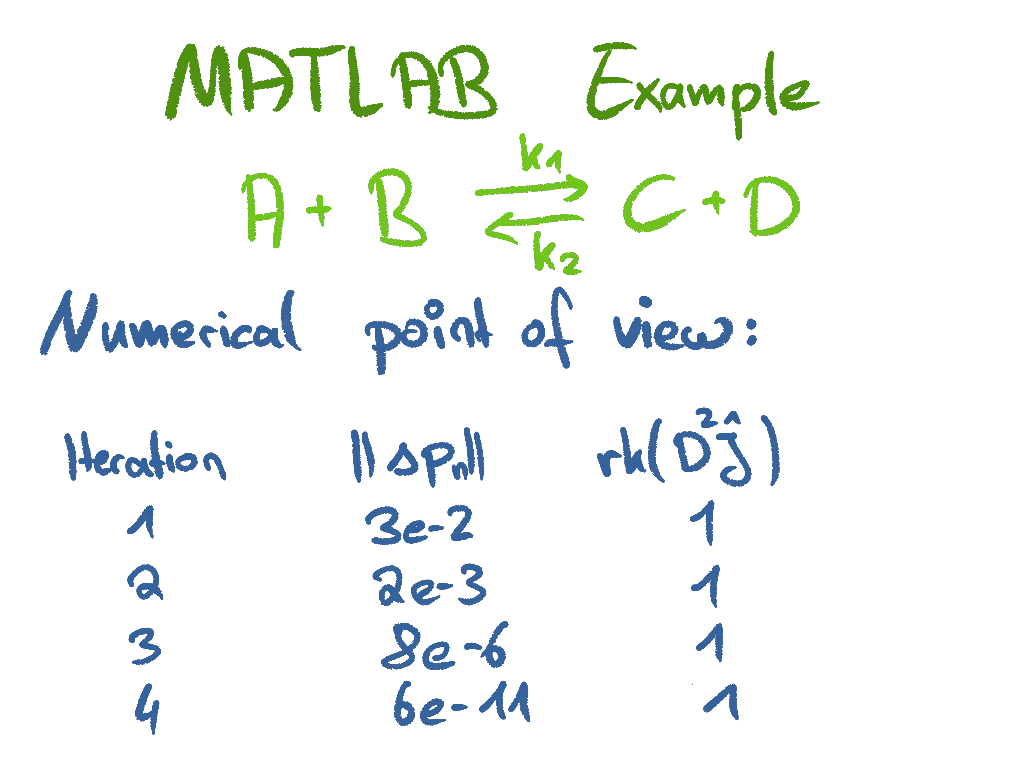 MATLAB Example
A + B ⇌ C + D
k1
k2
Numerical point of view:
Iteration ||Δpn|| rk(D²Ĵ)
1 3e-2 1
2 2e-3 1
3 8e-6 1
4 6e-11 1